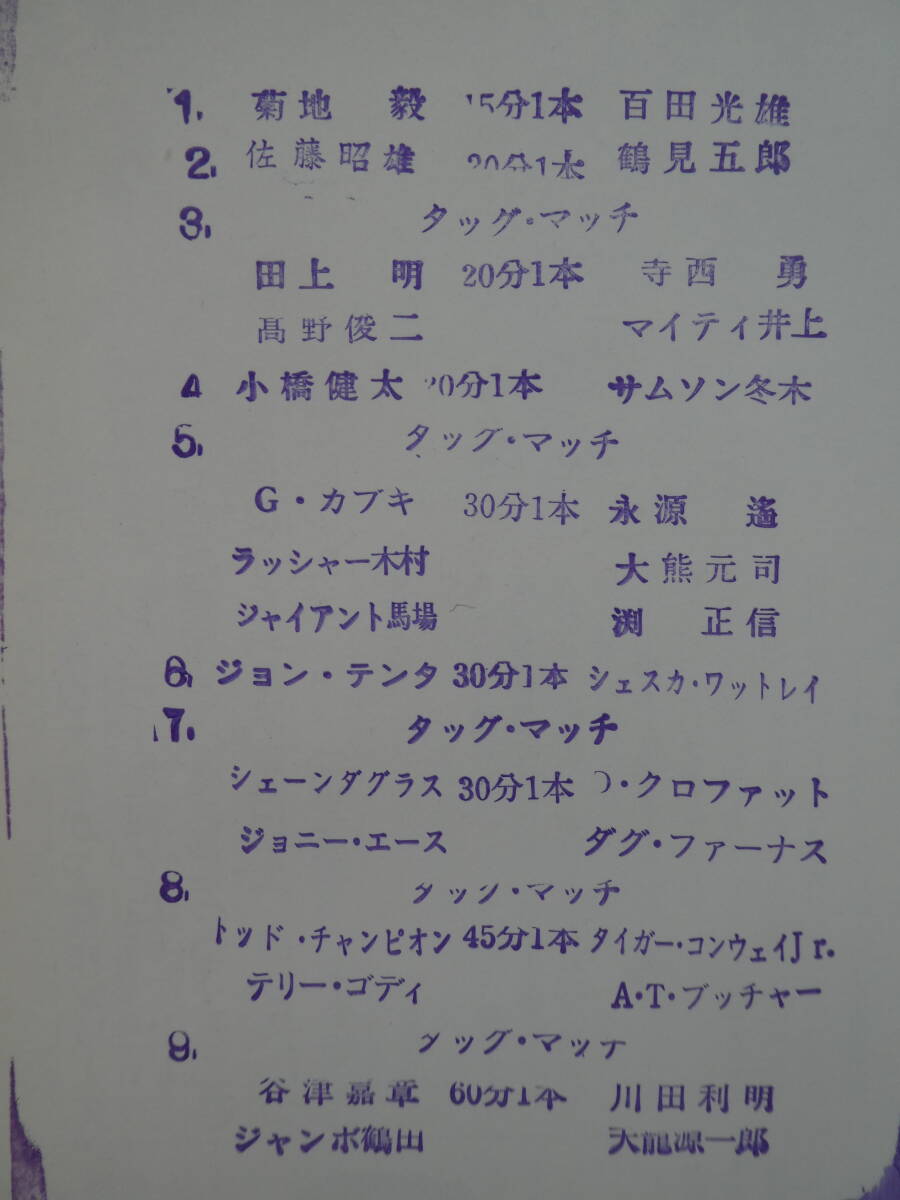 1. 菊地 毅 15分1本 百田光雄
2. 佐藤昭雄 20分1本 鶴見五郎
3. タッグ・マッチ
田上 明 20分1本 寺西 勇
髙野俊二 マイティ井上
4 小橋健太 20分1本 サムソン冬木
5. タッグ・マッチ
G・カブキ 30分1本 永源 遙
ラッシャー木村 大熊元司
ジャイアント馬場 渕 正信
6. ジョン・テンタ 30分1本 シェスカ・ワットレイ
7. タッグ・マッチ
シェーンダグラス 30分1本 D・クロファット
ジョニー・エース ダグ・ファーナス
8. タッグ・マッチ
トッド・チャンピオン 45分1本 タイガー・コンウェイJr.
テリー・ゴディ A・T・ブッチャー
9. タッグ・マッチ
谷津嘉章 60分1本 川田利明
ジャンボ鶴田 天龍源一郎